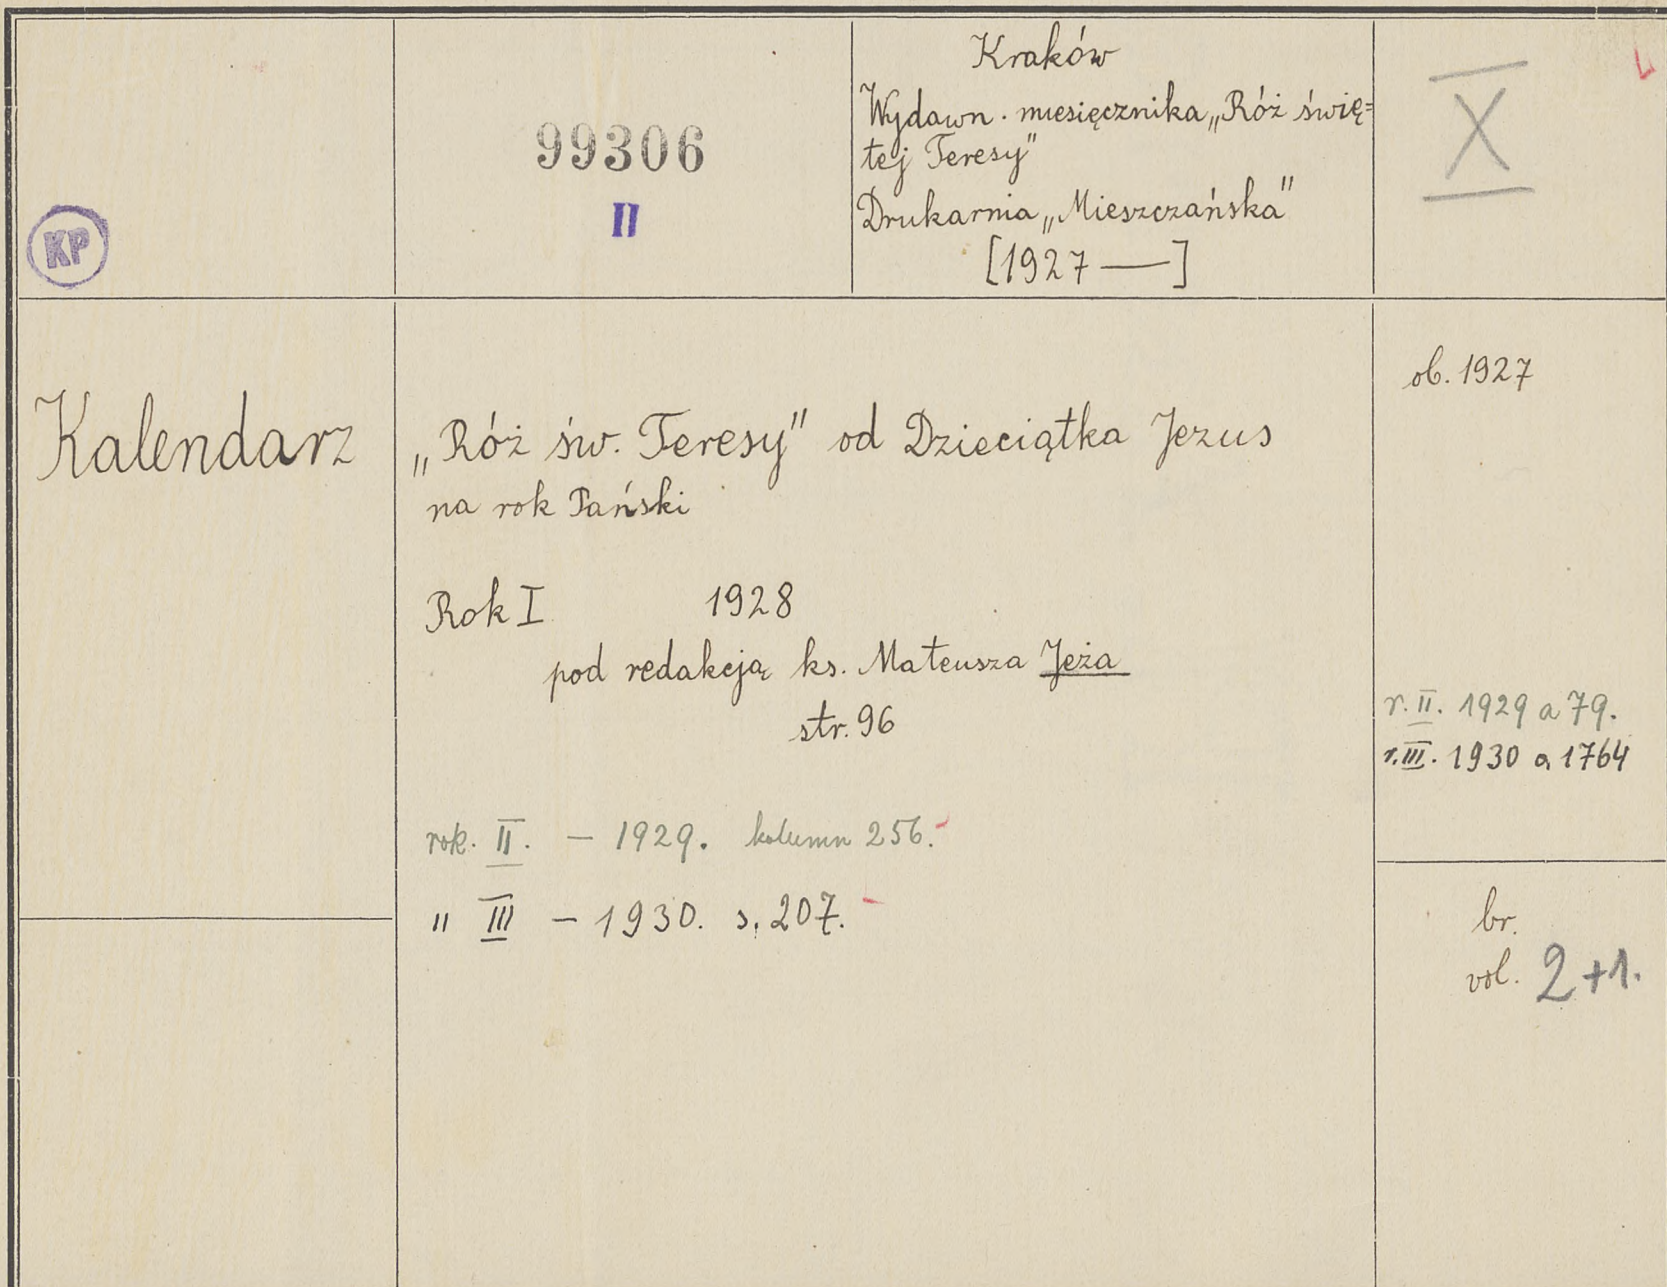 99306
II
KP
Kraków
Wydawn. miesięcznika „Róż świę=
tej Teresy"
Drukarnia „Mieszczańska"
[1927 — ]
X
Kalendarz
„Róż św. Teresy" od Dzieciątka Jezus
na rok Pański
Rok I 1928
pod redakcją ks. Mateusza Jeża
str. 96
rok. II. — 1929. kolumn 256.
" III — 1930. s. 207.
ob. 1927
r. II. 1929 a 79.
r. III. 1930 a 1764
br.
vol. 2+1.